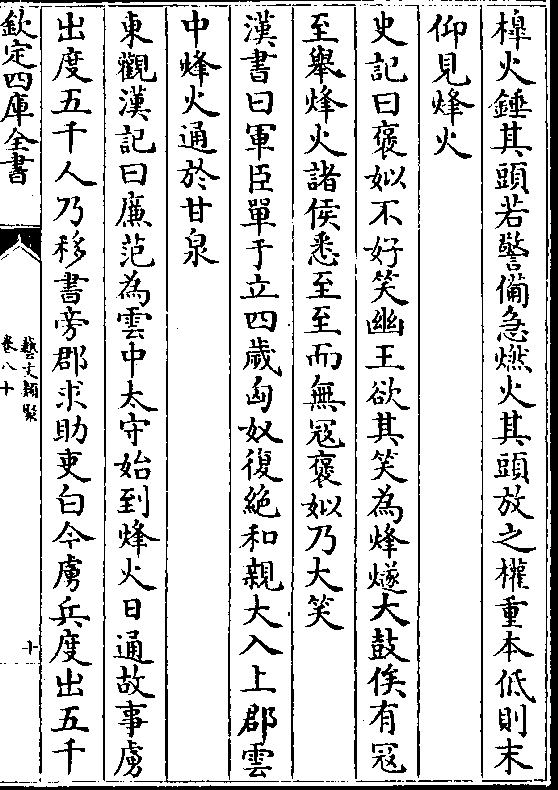 槔火錘其頭若警備急燃火其頭放之權重本低則末
仰見烽火
史記曰褒姒不好笑幽王欲其笑為烽燧大鼓俟有冦
至舉烽火諸侯悉至至而無冦褒姒乃大笑
漢書曰軍臣單于立四歲匈奴復絶和親大入上郡雲
中烽火通於甘泉
東觀漢記曰廉范為雲中太守始到烽火日通故事虜
出度五千人乃移書旁郡求助吏白今虜兵度出五千
欽定四庫全書
藝文類聚
卷八十
十